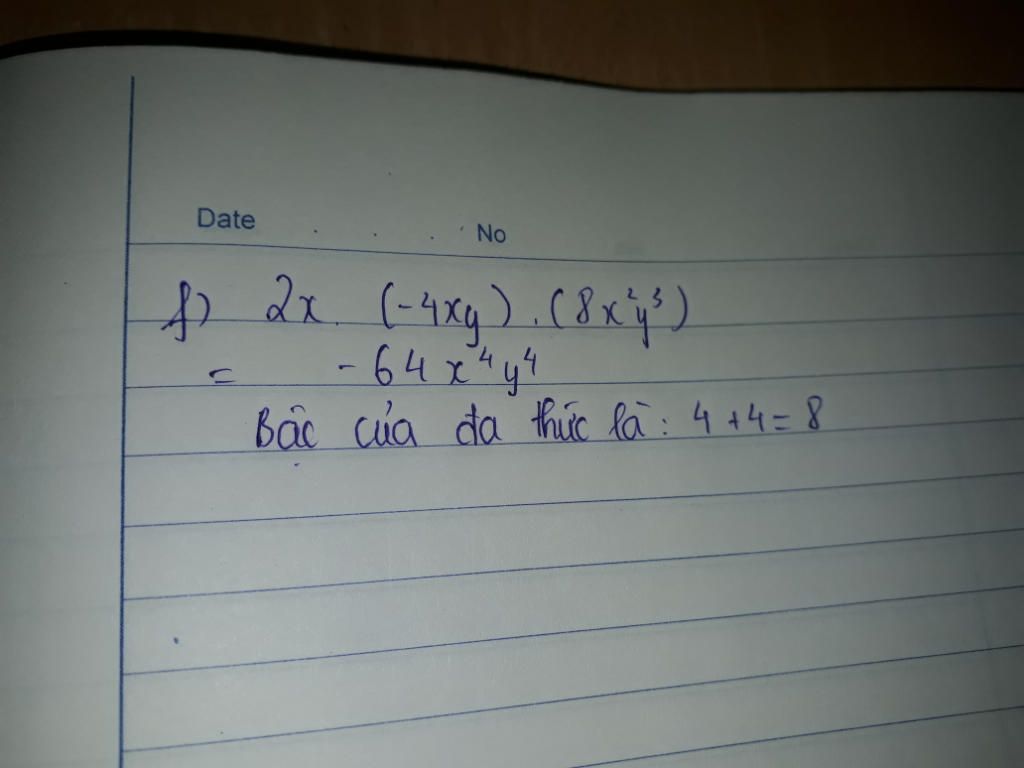 Date . . . No
f) 2x. (-4xy).(8x²y³)
= -64x⁴y⁴
Bậc của đa thức là: 4+4=8